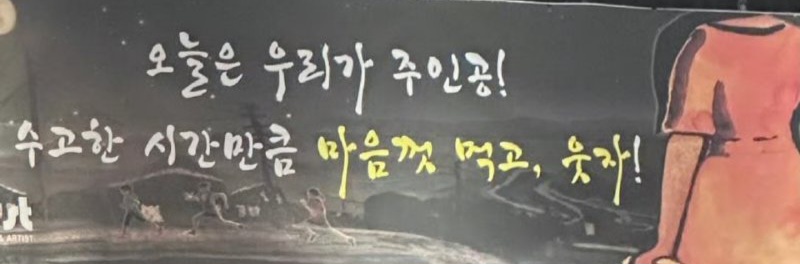 오늘은 우리가 주인공!
수고한 시간만큼 마음껏 먹고, 웃자!
& ARTIST